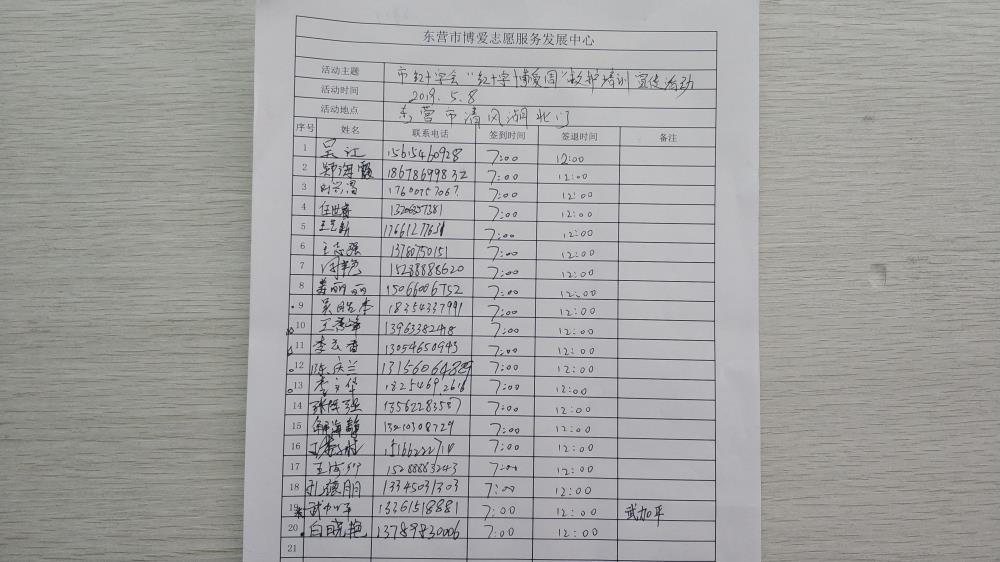 东营市博爱志愿服务发展中心
活动主题 市红十字会“红十字博爱周”救护培训宣传活动
活动时间 2019.5.8
活动地点 东营市清风湖北门
序号 姓名 联系电话 签到时间 签退时间 备注
1 吴江 15615460928 7:00 12:00
2 郑海霞 18678699832 7:00 12:00
3 7:00 12:00
4 7:00 12:00
5 7:00 12:00
6 王志强 13780750151 7:00 12:00
7 15288888620 7:00 12:00
8 姜丽丽 15066006752 7:00 12:00
9 18354337991 7:00 12:00
10 13963382418 7:00 12:00
11 李云香 13054650943 7:00 12:00
12 陈庆兰 7:00 12:00
13 李立华 7:00 12:00
14 13562283537 7:00 12:00
15 7:00 12:00
16 7:00 12:00
17 15288883243 7:00 12:00
18 孔德朋 13345031303 7:00 12:00
19 武加平 13361518881 7:00 12:00 武加平
20 白晓艳 13789830006 7:00 12:00
21